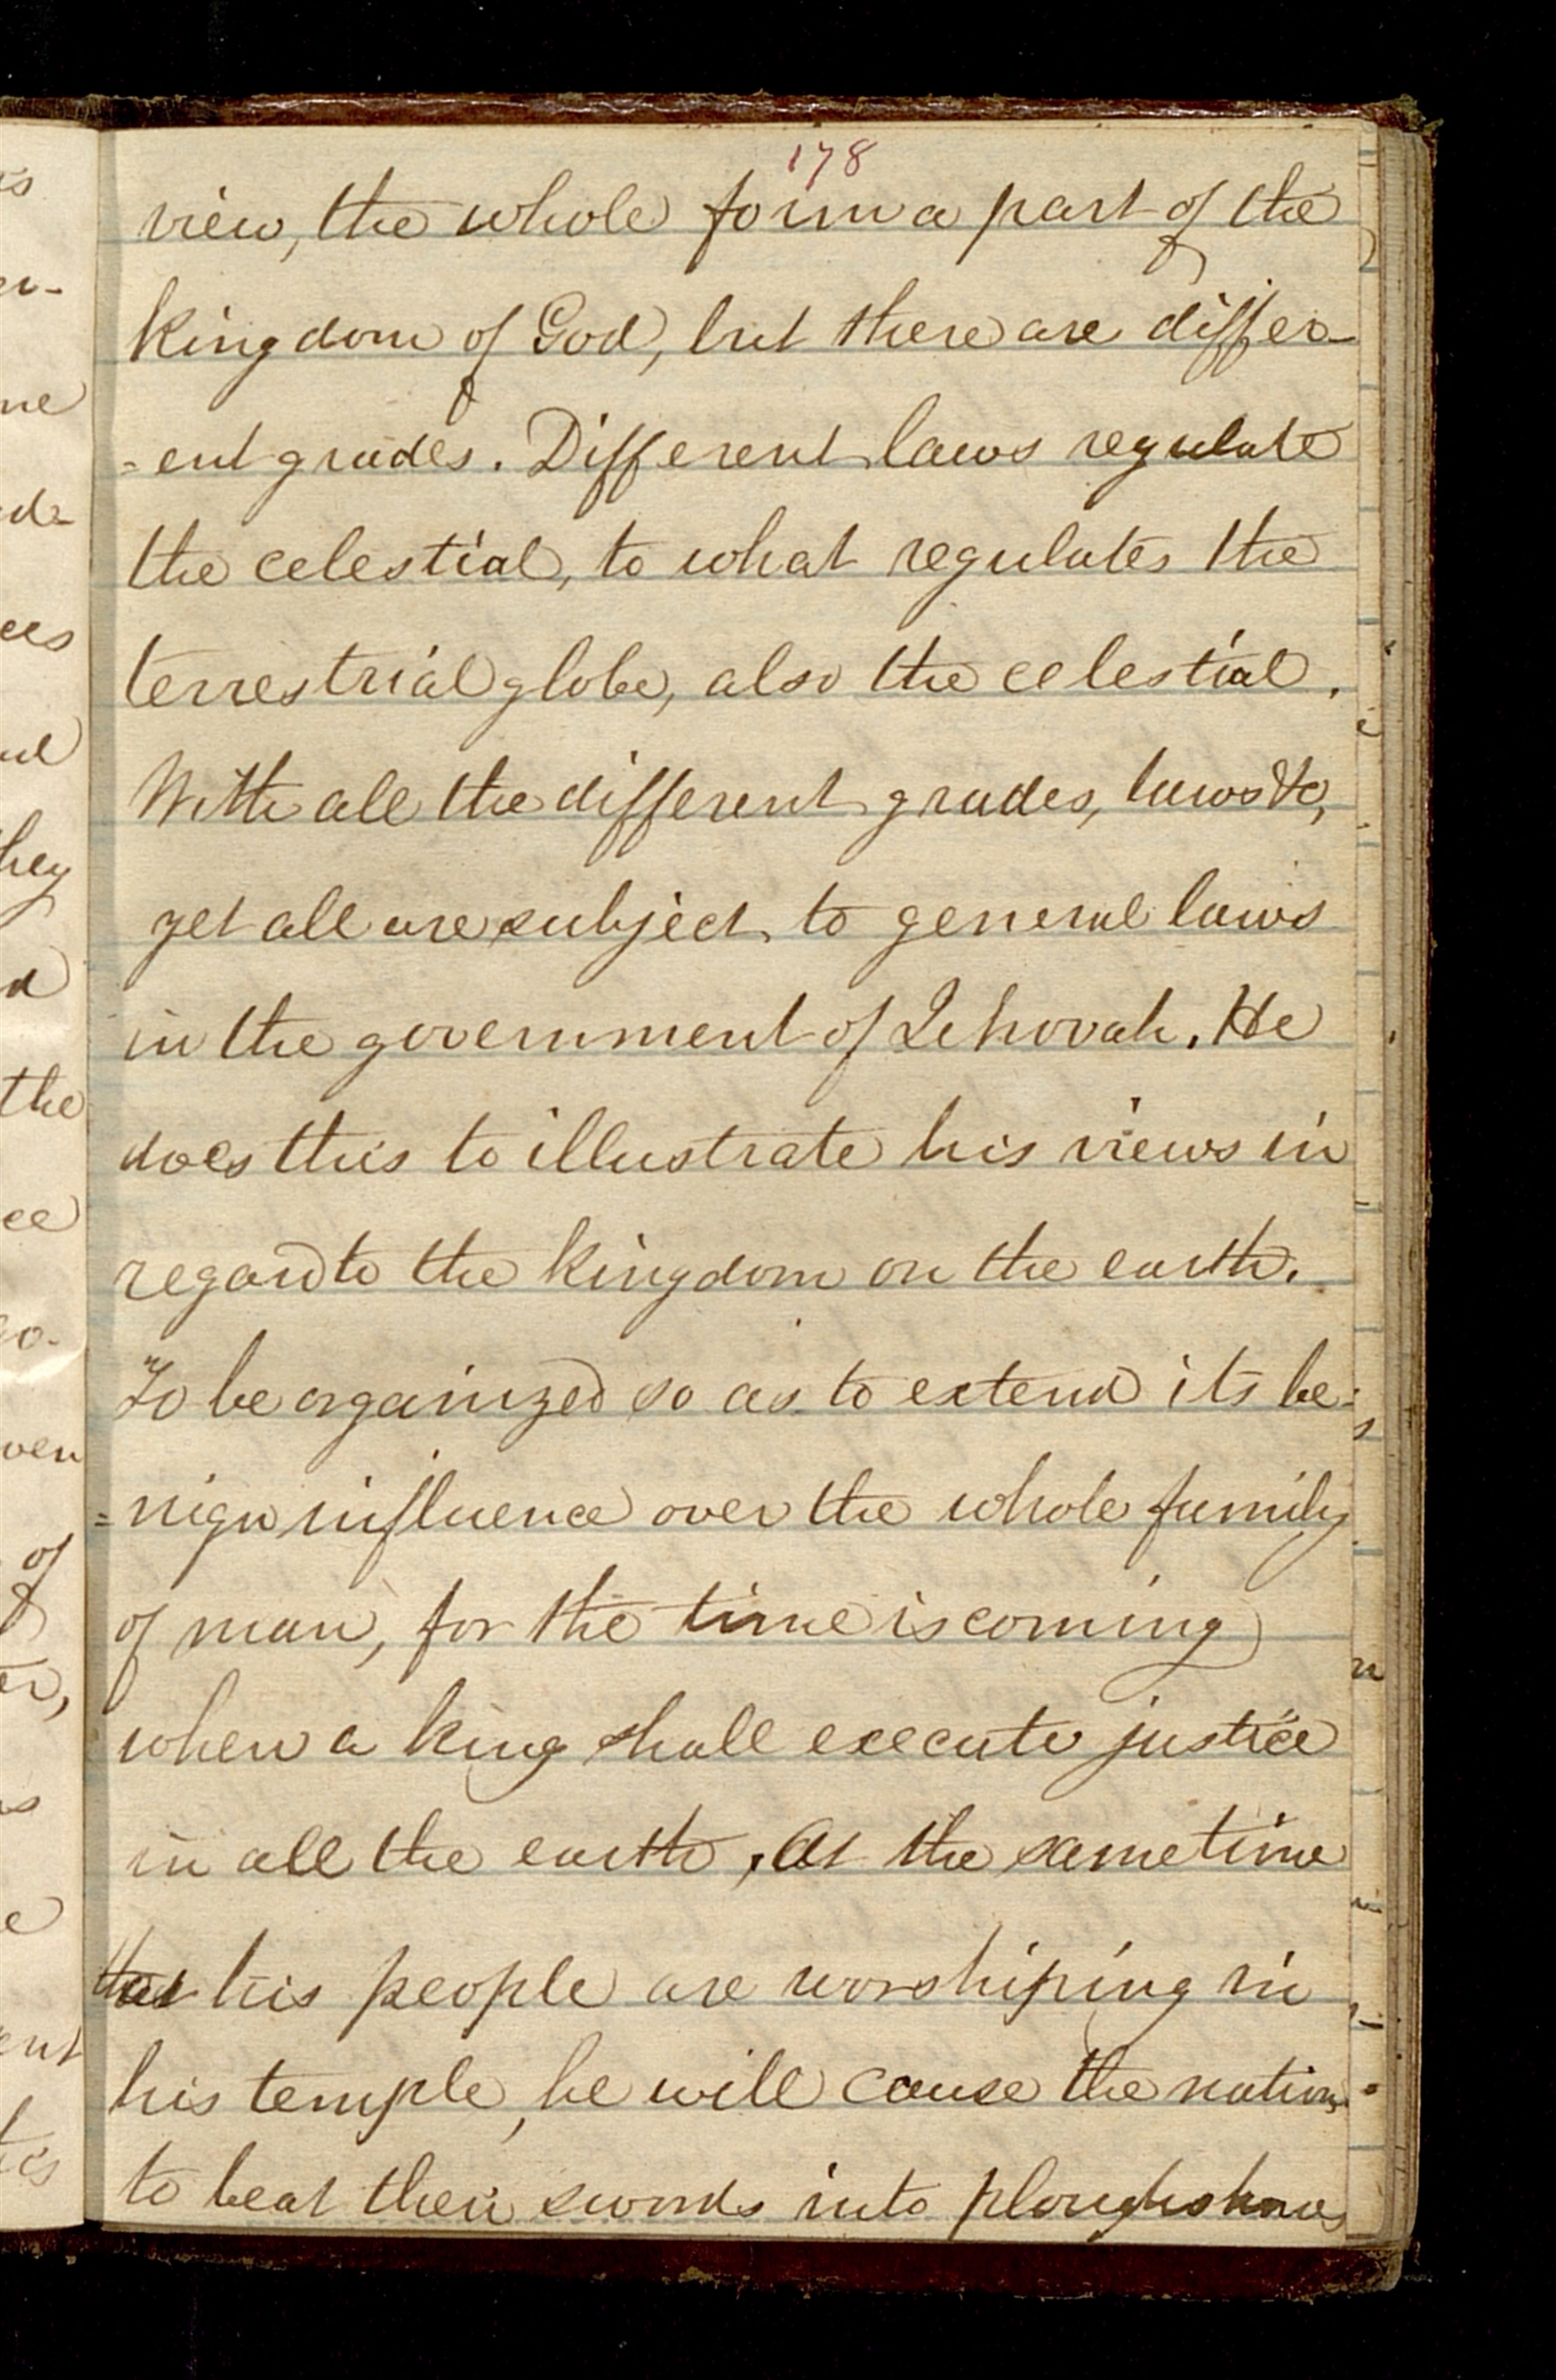 178
view, the whole form a part of the
kingdom of God, but there are differ-
=ent grades. Different laws regulate
the celestial, to what regulates the
terrestrial globe, also the celestial.
With all the different grades, laws &c,
yet all are subject to general laws
in the government of Jehovah. He
does this to illustrate his views in
regard to the kingdom on the earth.
To be organized so as to extend its be=
=nign influence over the whole family
of man, for the time is coming
when a king shall execute justice
in all the earth, At the same time
that his people are worshiping in
his temple, he will cause the nations
to beat their swords into ploughshares